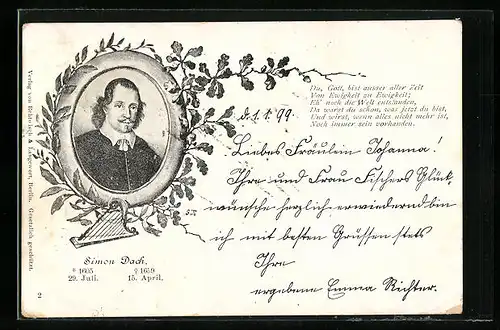 Du, Gott, bist ausser aller Zeit
Von Ewigkeit zu Ewigkeit;
Eh' noch die Welt entstanden,
Da warst du schon, was jetzt du bist,
Und wirst, wenn alles nicht mehr ist,
Noch immer sein vorhanden.
d. 1. 1. 99.
Liebes Fräulein Johanna!
Ihre und Frau Fischers Glück-
wünsche herzlich erwiedernd bin
ich mit besten Grüssen stets
Ihre
ergebene Emma Richter.
Simon Dach,
* 1605 † 1659
29. Juli. 15. April.
2
Berlin. Gesetzlich geschützt.
Verlag von